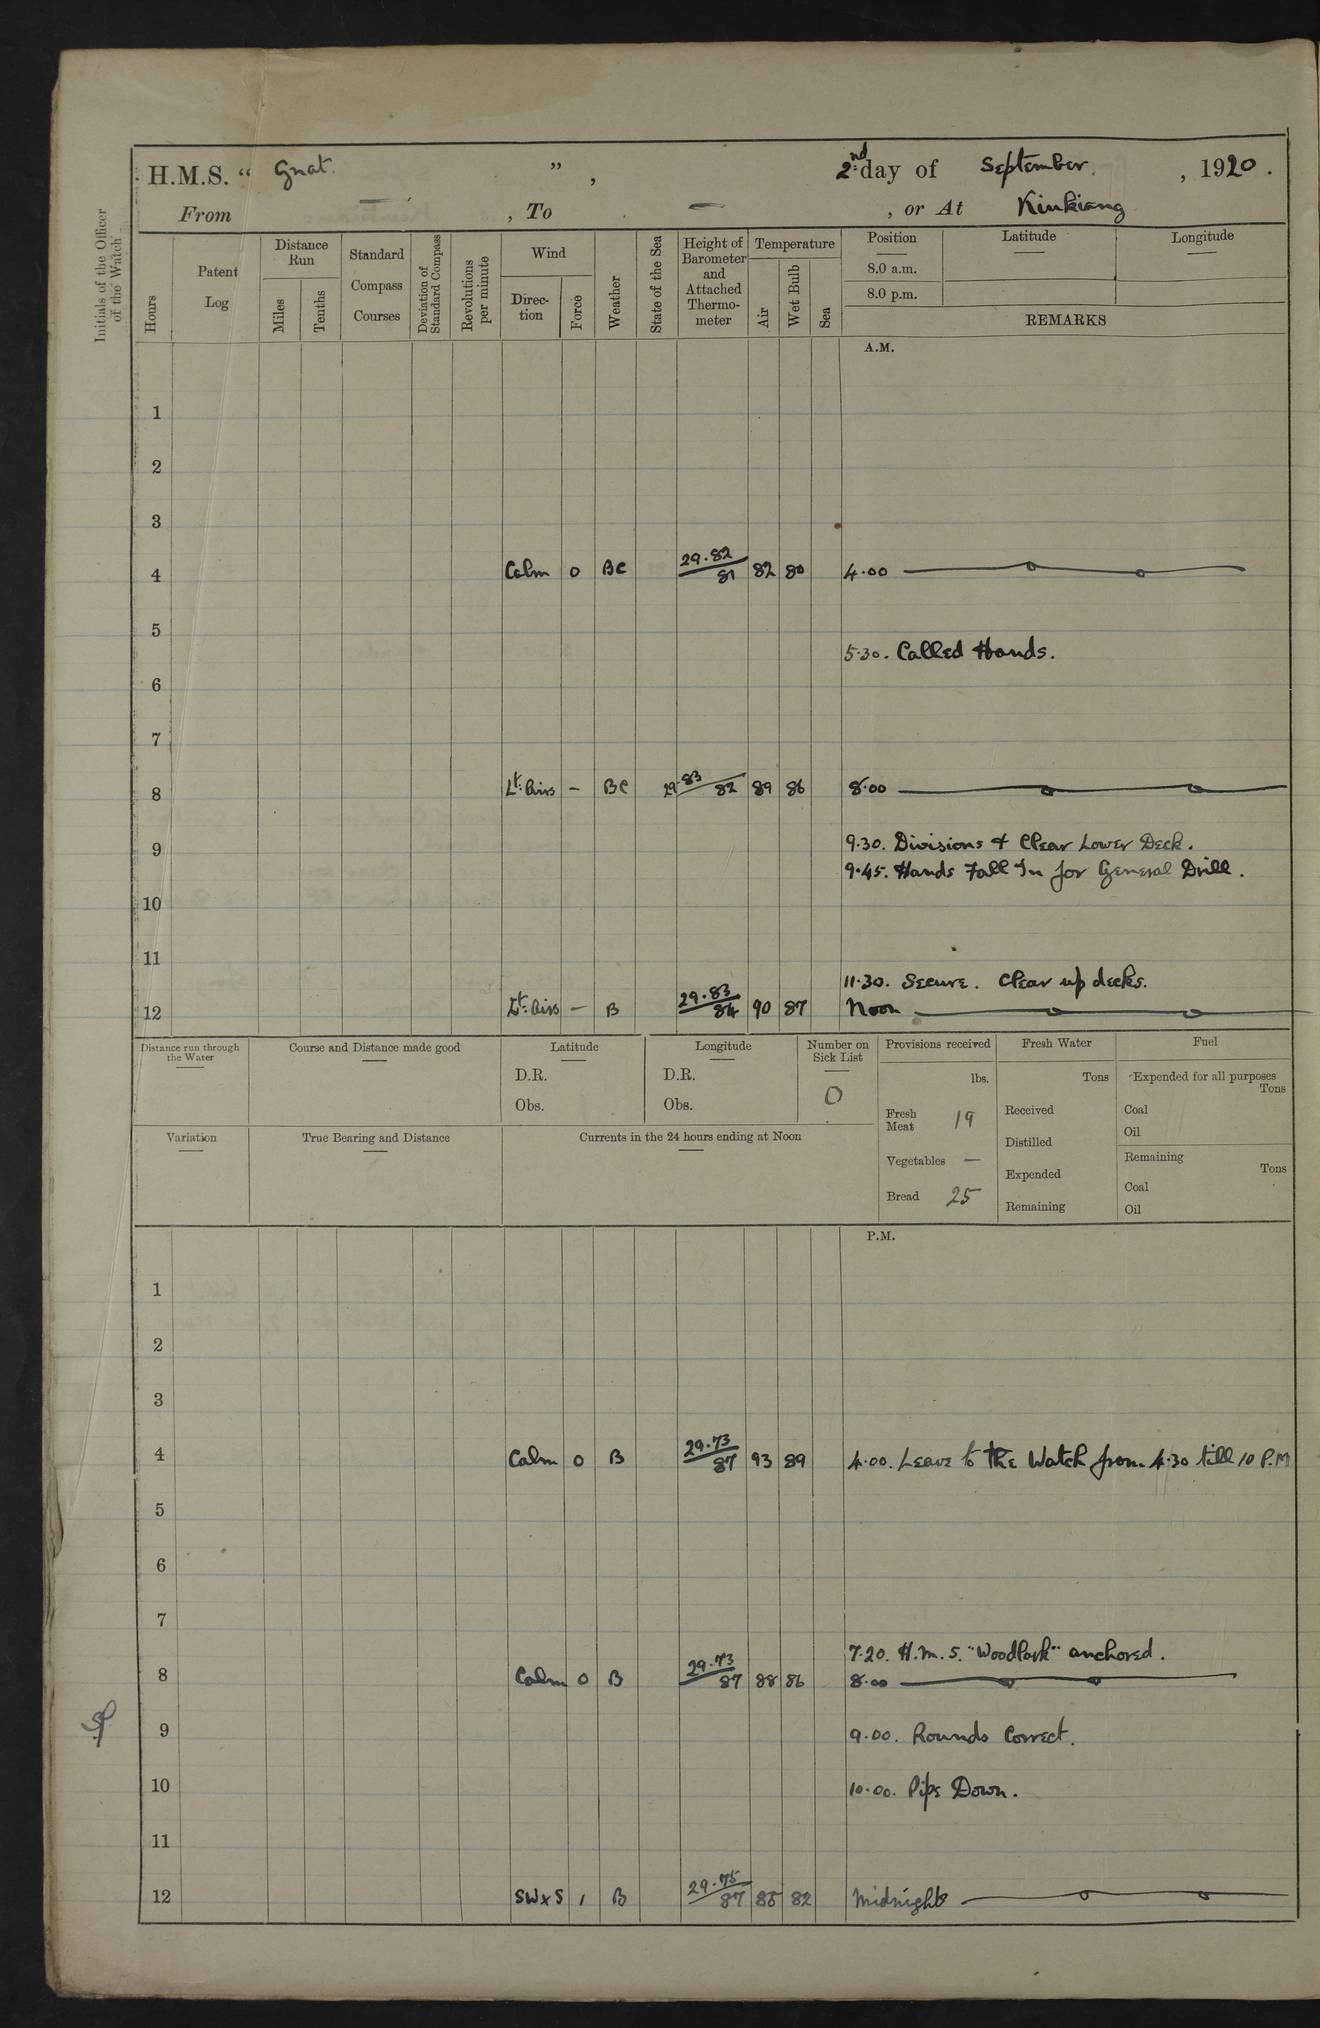 H.M.S. “ Gnat. ”, 2nd day of September, 1920.
From — , To — , or At Kiukiang
Initials of the Officer of the Watch
Hours
Patent Log
Distance Run
Miles
Tenths
Standard Compass Courses
Deviation of Standard Compass
Revolutions per minute
Wind
Direc-tion
Force
Weather
State of the Sea
Height of Barometer and Attached Thermo-meter
Temperature
Air
Wet Bulb
Sea
Position
8.0 a.m.
8.0 p.m.
Latitude
Longitude
REMARKS
A.M.
1
2
3
4 Calm 0 BC 29.82 81 82 80 4.00
5
5.30. Called Hands.
6
7
8 Lt. Airs — BC 29.83 82 89 86 8.00
9 9.30. Divisions & Clear Lower Deck.
9.45. Hands Fall In for General Drill.
10
11
11.30. Secure. Clear up decks.
12 Lt. Airs — B 29.83 84 90 87 Noon
Distance run through the Water
Course and Distance made good
Latitude
D.R.
Obs.
Longitude
D.R.
Obs.
Number on Sick List
0
Provisions received
lbs.
Fresh Meat 19
Vegetables —
Bread 25
Fresh Water
Tons
Received
Distilled
Expended
Remaining
Fuel
Expended for all purposes
Tons
Coal
Oil
Remaining
Tons
Coal
Oil
Variation
True Bearing and Distance
Currents in the 24 hours ending at Noon
P.M.
1
2
3
4 Calm 0 B 29.73 87 93 89 4.00. Leave to the Watch from 4.30 till 10 P.M
5
6
7
7.20. H.M.S. "Woodlark" anchored.
8 Calm 0 B 29.73 87 88 86 8.00
9 9.00. Rounds Correct.
10 10.00. Pipe Down.
11
12 SWxS 1 B 29.75 87 85 82 Midnight